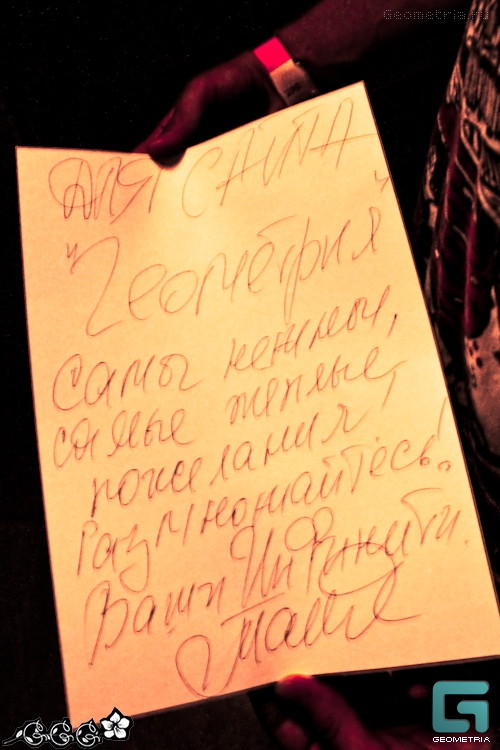 Geometria.ru
ДЛЯ САЙТА
"Геометрия"
Самые нежные,
самые теплые,
пожелания!
Размножайтесь!
Ваши Инфинити.
GEOMETRIA